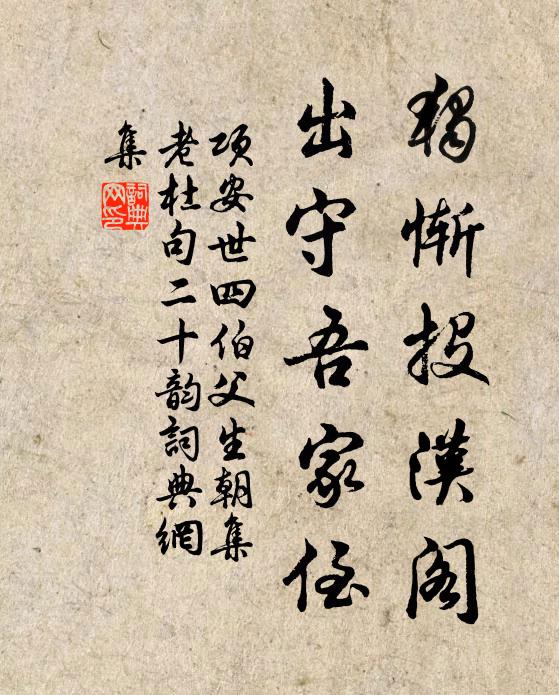 獨慚投漢閣
出守吾家侄
項安世四伯父生朝集
老杜句二十韵詞典網
集
詞典
网印